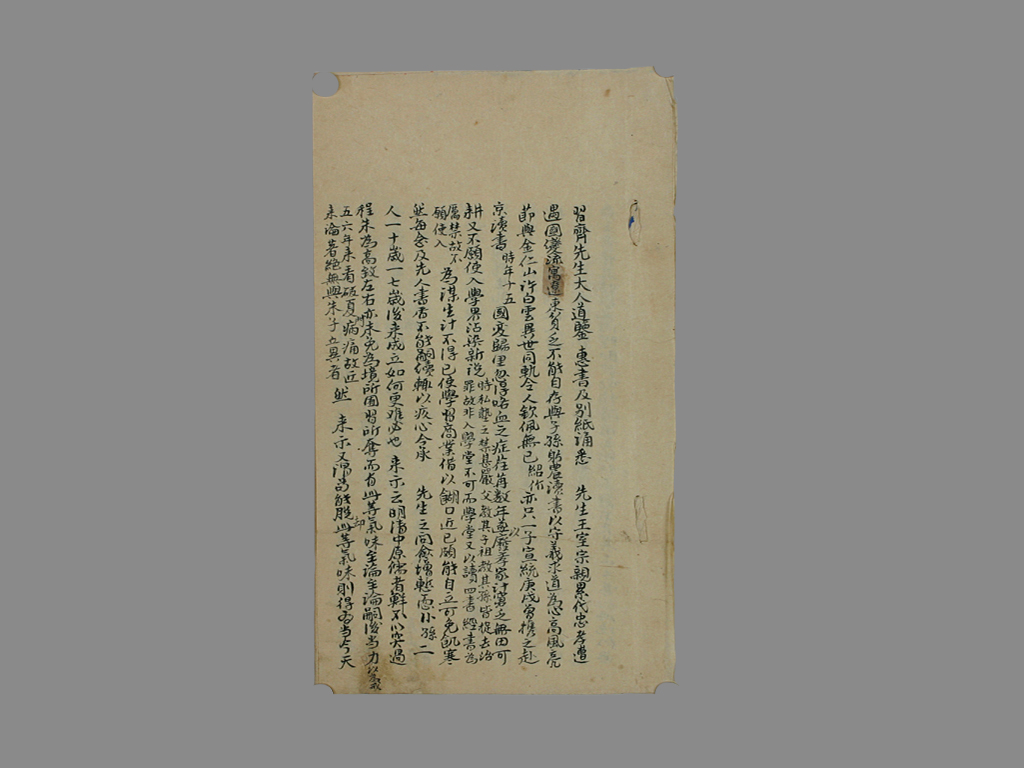 習齊先生大人道鑒 惠書及別紙誦悉 先生王室宗親累代忠孝遭
遇國變流寓遼東貧乏不能自存與子孫躬農讀書以守義求道為心高風亮
節與金仁山許白雲異世同軌令人欽佩無已 紹作 亦只一子宣統庚戌曾携之赴
京讀書 時年十五 國變歸里忽得咯血之症荏苒數年遂廢 家計蕭乏無田可
耕又不願使入學界沾染新說 時私塾之禁甚嚴父教其子祖教其孫皆提去治
罪故非入學堂不可而學堂又以讀四書經書為
厲禁故不
願使入 為謀生計不得已使學習商業借以餬口近已頗能自立可免飢寒
然每念及先人書香不能嗣續輒以疚心今承 先生之問愈增慙恧小孫二
人一十歲一七歲後來成立如何更難必也 來示云明清中原儒者輒不以突過
程朱為高致左右亦未免為境所囿習所奪而有此等氣味至論至論嗣後當力以為戒
五六年來看破夏病痛故近
來論著絕無與朱子立異者 然 來示又謂尚能脫此等氣味則得為當今天